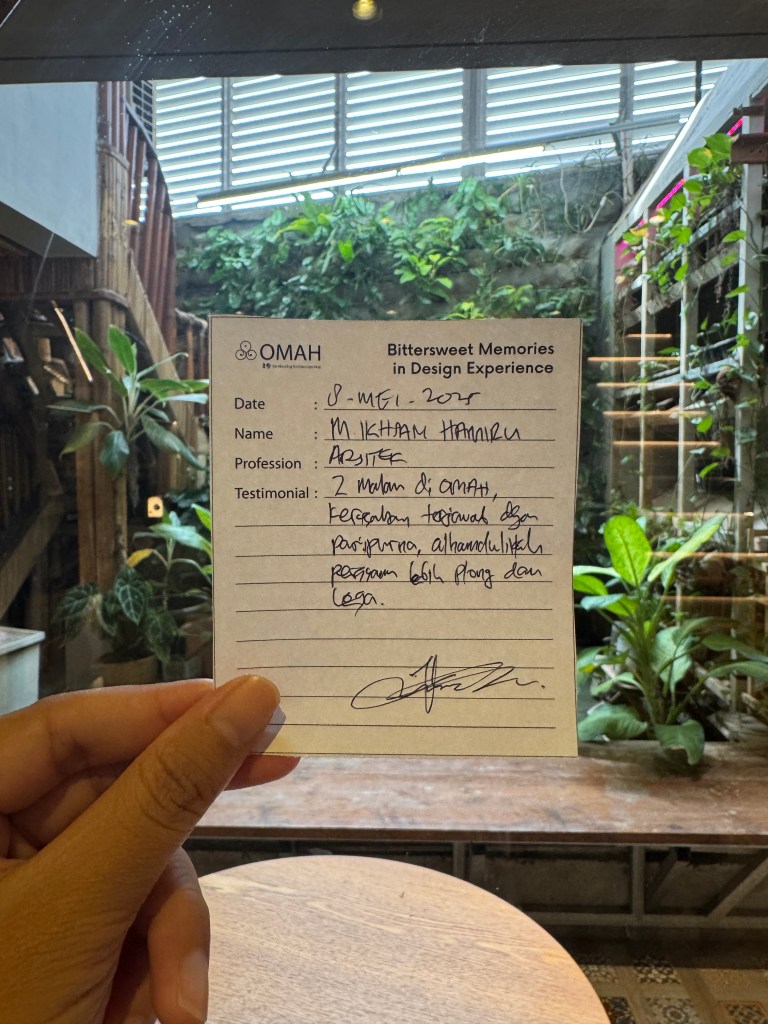 OMAH
Bittersweet Memories
in Design Experience
Date : 8-MEI-2025
Name : M IKHAM HAMIRU
Profession : ARSITEK
Testimonial : 2 malam di OMAH,
keresahan terjawab dgan
paripurna, alhamdulillah
perasaan lebih plong dan
lega.